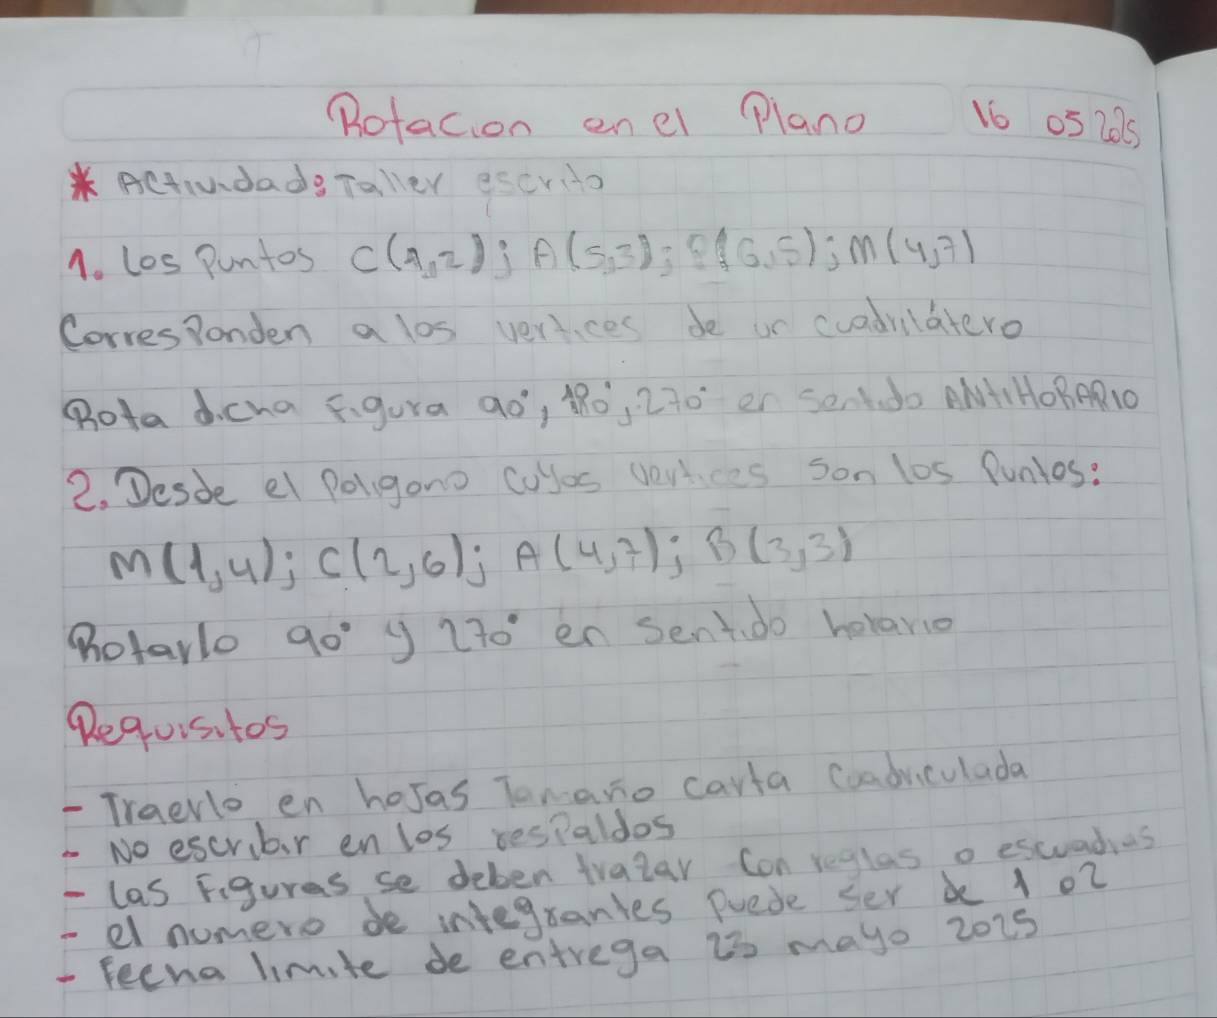 Rotacion en el Plano 16 05 2025
* Actividad: Taller escrito
1. los Puntos C(1,2); A(5,3); (6,5); M(4,7)
CorresPonden a los vertices de un cuadrilátero
Rota dicha Figura 90°, 180°, 270° en sentido ANtiHoRARIO
2. Desde el Poligono cuyos vertices son los Puntos:
M(1,4); C(2,6); A(4,7); B(3,3)
Rotarlo 90° y 270° en sentido horario
Requisitos
- Traerlo en hoJas Tamaño carta Coadriculada
- No escribir en los resPaldos
- las Figuras se deben trazar Con reglas o escuadras
- el numero de integrantes Puede ser de 1 o 2
- Fecha limite de entrega 23 mayo 2025